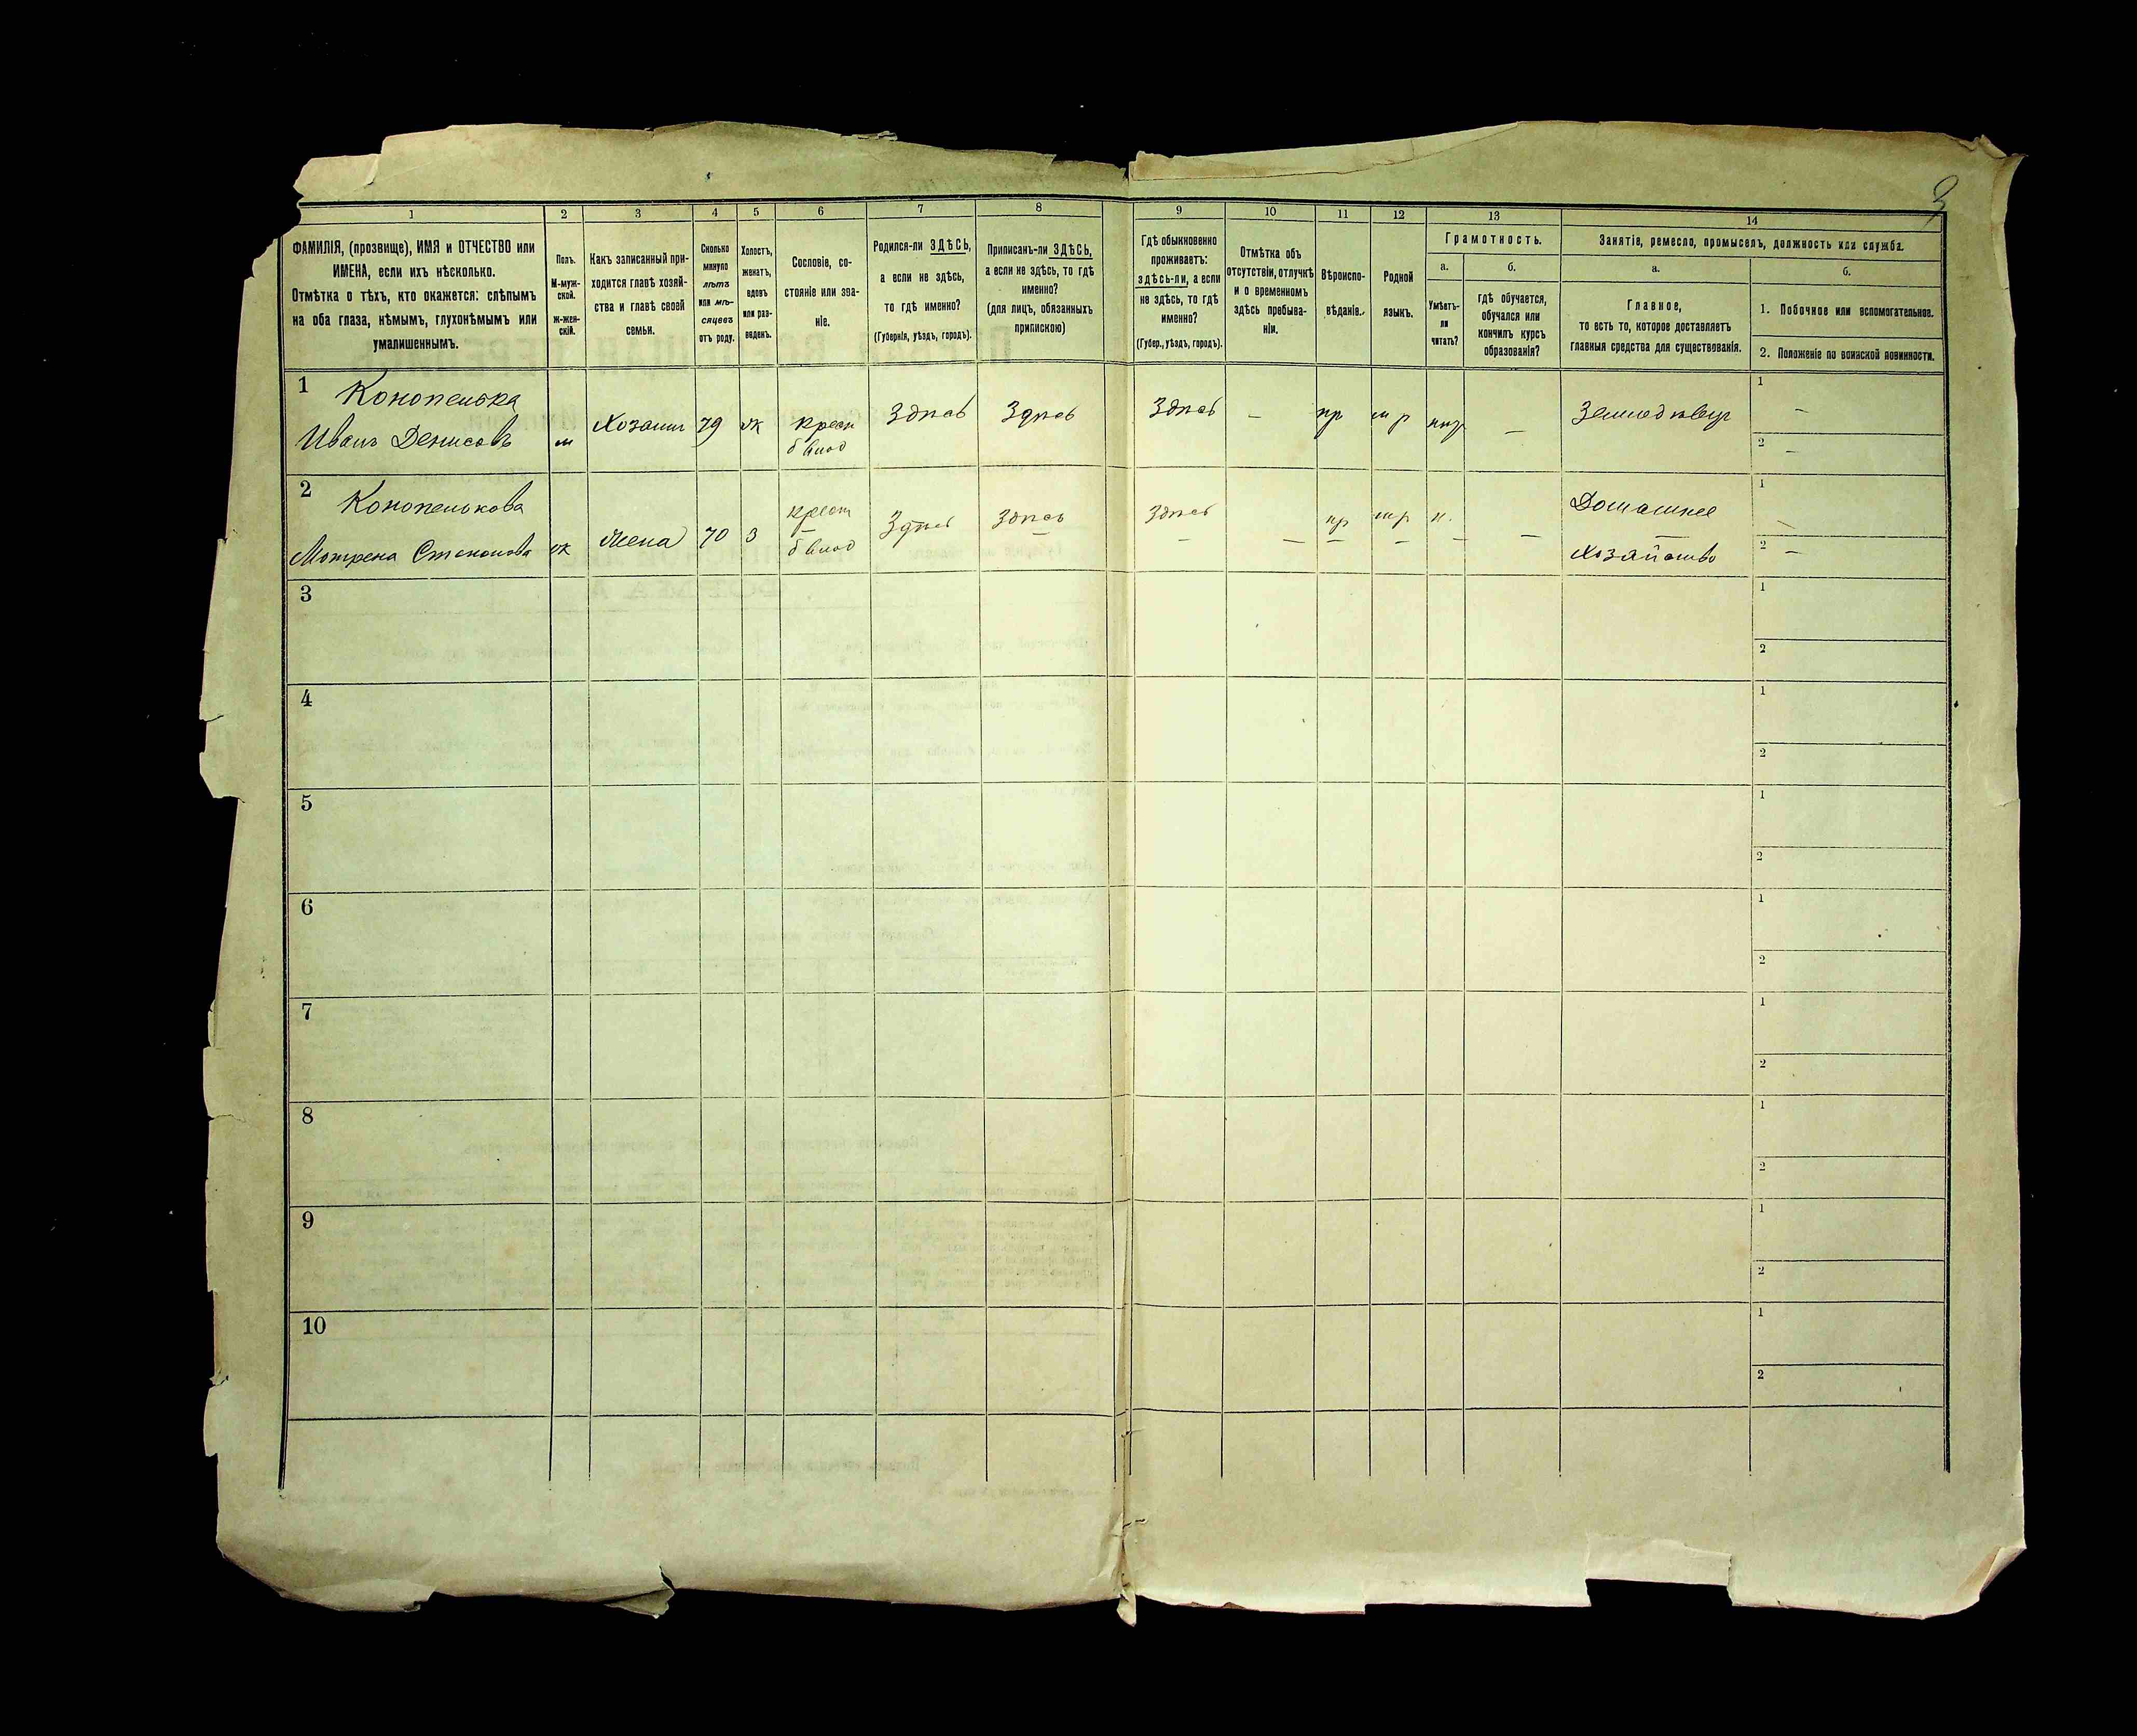 3
1 2 3 4 5 6 7 8 9 10 11 12 13 14
ФАМИЛІЯ, (прозвище), ИМЯ и ОТЧЕСТВО или
ИМЕНА, если ихъ нѣсколько.
Отмѣтка о тѣхъ, кто окажется: слѣпымъ
на оба глаза, нѣмымъ, глухонѣмымъ или
умалишеннымъ.
Полъ.
М-муж-
ской.
Ж-жен-
скій.
Какъ записанный при-
ходится главѣ хозяй-
ства и главѣ своей
семьи.
Сколько
минуло
лѣтъ
или мѣ-
сяцевъ
отъ роду.
Холостъ,
женатъ,
вдовъ
или раз-
веденъ.
Сословіе, со-
стояніе или зва-
ніе.
Родился-ли ЗДѢСЬ,
а если не здѣсь,
то гдѣ именно?
(Губернія, уѣздъ, городъ).
Приписанъ-ли ЗДѢСЬ,
а если не здѣсь, то гдѣ
именно?
(для лицъ, обязанныхъ
припискою)
Гдѣ обыкновенно
проживаетъ:
здѣсь-ли, а если
не здѣсь, то гдѣ
именно?
(Губер., уѣздъ, городъ).
Отмѣтка объ
отсутствіи, отлучкѣ
и о временномъ
здѣсь пребыва-
ніи.
Вѣроиспо-
вѣданіе.
Родной
языкъ.
Грамотность.
а.
Умѣетъ-
ли
читать?
б.
гдѣ обучается,
обучался или
кончилъ курсъ
образованія?
Занятіе, ремесло, промыселъ, должность или служба.
а.
Главное,
то есть то, которое доставляетъ
главныя средства для существованія.
б.
1. Побочное или вспомогательное.
2. Положеніе по воинской повинности.
1 Конопенька
Иванъ Денисовъ м Хозяинъ 79 ж крест
б влад
Здѣсь Здѣсь Здѣсь — пр м р — Земледѣлец
1 —
2 —
2 Конопенькова
Мотрена Степанова ж Жена 70 З крест
б влад
Здѣсь Здѣсь Здѣсь — пр м р н. — Домашнее
Хозяйство
1 —
2 —
3 1
2
4 1
2
5 1
2
6 1
2
7 1
2
8 1
2
9 1
2
10 1
2